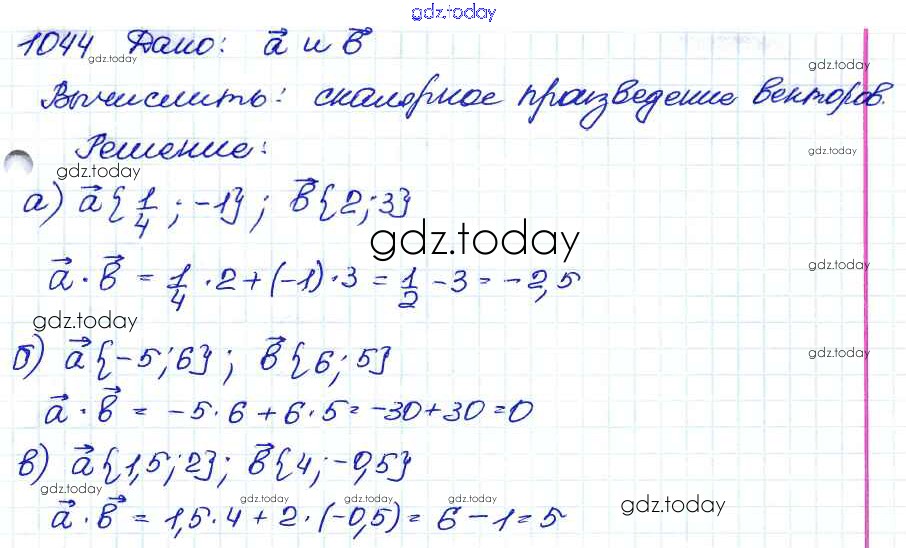 gdz.today
1044 Дано: a⃗ и b⃗
gdz.today
gdz.today
Вычислить: скалярное произведение векторов.
Решение:
gdz.today
gdz.today
а) a⃗{1/4; -1}; b⃗{2; 3}
gdz.today
a⃗ · b⃗ = 1/4 · 2 + (-1) · 3 = 1/2 - 3 = -2,5
gdz.today
gdz.today
б) a⃗{-5; 6}; b⃗{6; 5}
gdz.today
a⃗ · b⃗ = -5 · 6 + 6 · 5 = -30 + 30 = 0
в) a⃗{1,5; 2}; b⃗{4; -0,5}
gdz.today
gdz.today
gdz.today
gdz.today
gdz.today
a⃗ · b⃗ = 1,5 · 4 + 2 · (-0,5) = 6 - 1 = 5